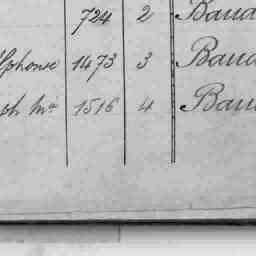 724 2 Baud
lphonse 1473 3 Baud
ph Mie 1516 4 Bau